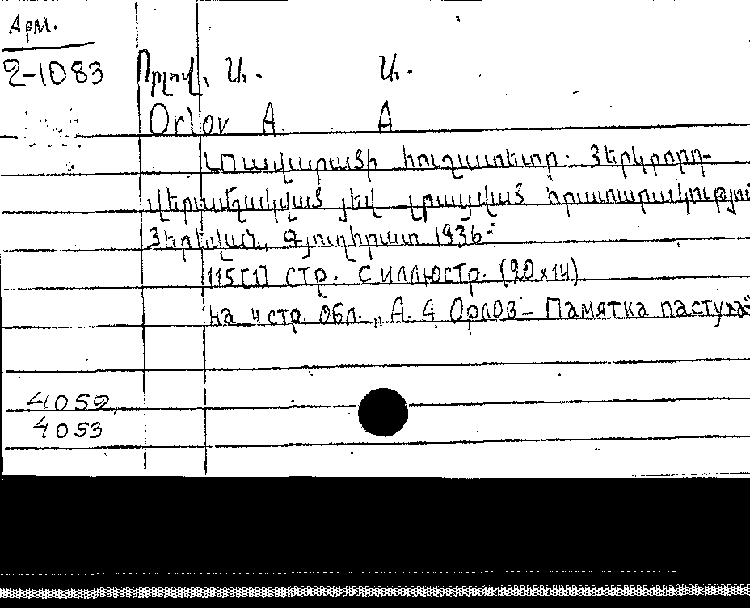 Арм.
2-1083
Օրլով, Ա. Ա.
Orlov A A
հուշատետր. Յերկրորդ
վերամշակված յեվ լրացված հրատարակություն
Յերեվան, Գյուղհրատ 1936
115[1] стр. с иллюстр. (20х14)
на 4 стр обл. „А. Ф Орлов – Памятка пастуха"
4052,
4053